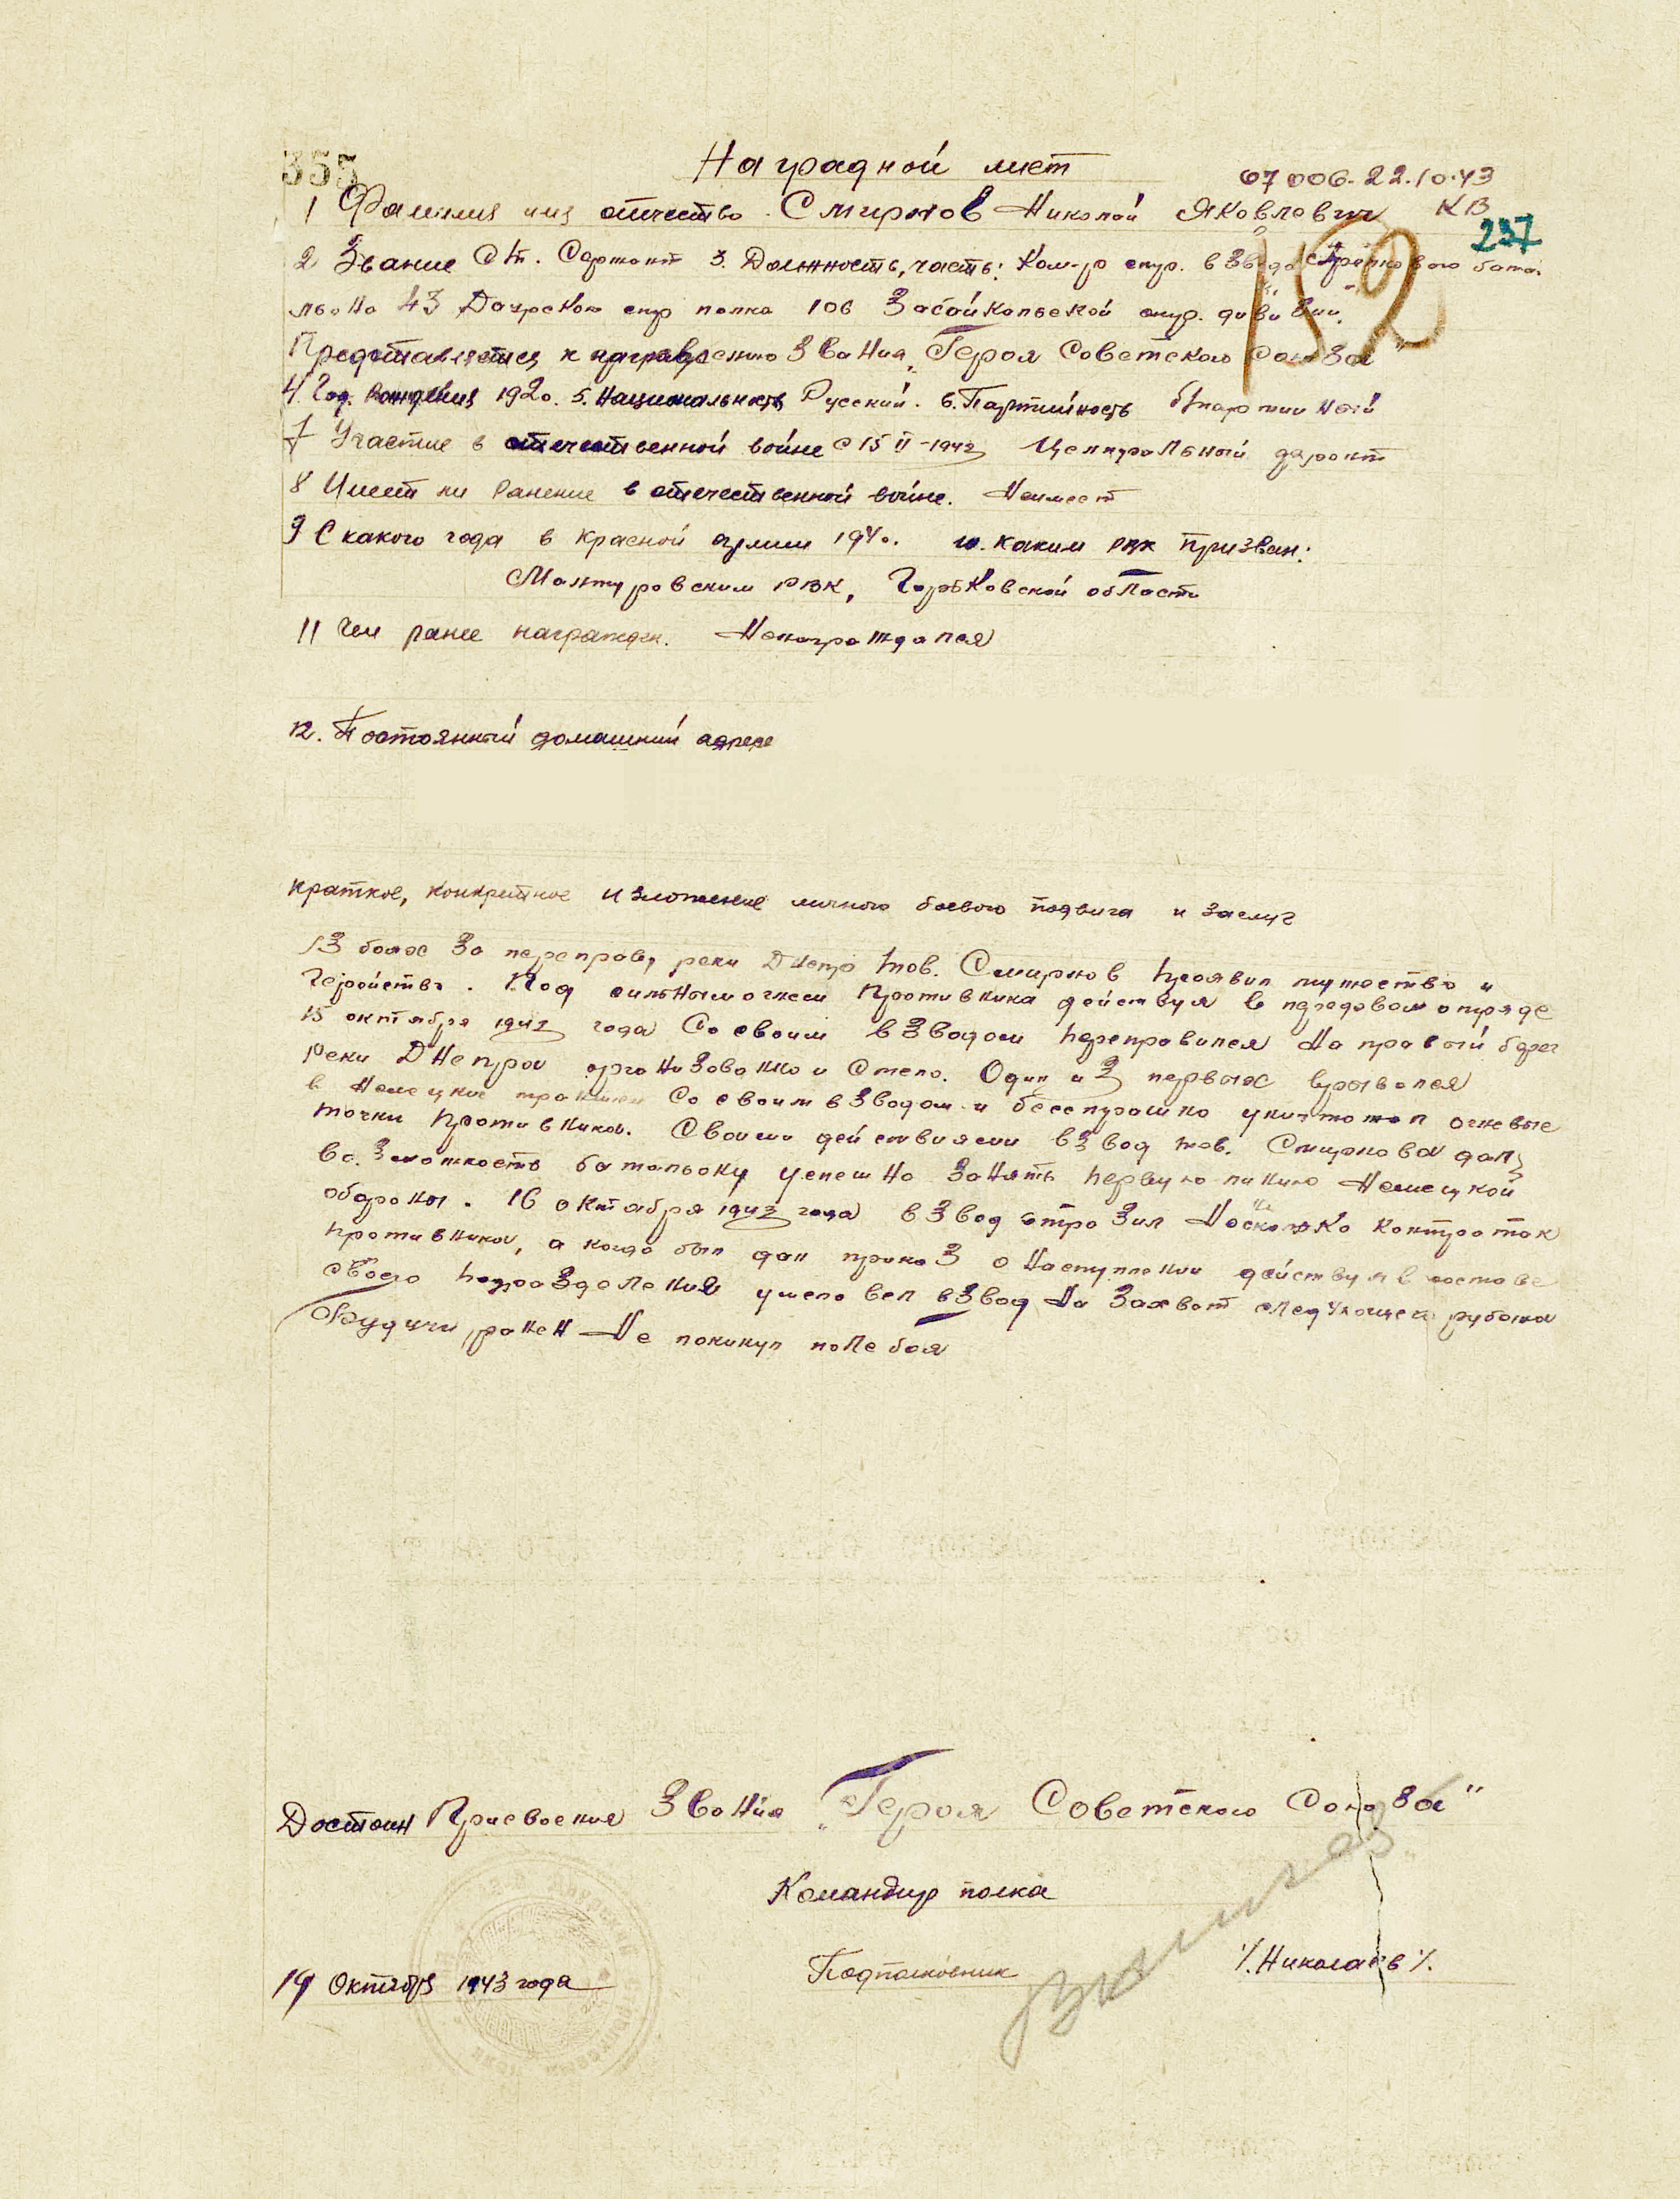 355
Наградной лист
07006. 22.10.43
КВ
237
1 Фамилия имя отчество. Смирнов Николай Яковлевич
2 Звание Ст. Сержант 3. Должность, часть: Ком-р стр. взвода стрелкового бата-
льона 43 Даурского стр полка 106 Забайкальской стр. дивизии.
Представляется к награждению Звания „Героя Советского Союза"
4. Год. рождения 1920. 5. Национальность Русский. 6. Партийность б/партийный
7 Участие в отечественной войне с 15 II-1943 Центральный фронт
8 Имеет ли ранение в отечественной войне. Неимеет
9 С какого года в красной армии 1940. 10. каким рвк призван:
Мантуровским РВК, Горьковской области
11 Чем ранее награжден. Ненаграждался
12. Постоянный домашний адресс
краткое, конкретное изложение личного боевого подвига и заслуг
В боях за переправу реки Днепр тов. Смирнов проявил мужество и
геройство. Под сильным огнем противника действуя в передовом отряде
15 октября 1943 года со своим взводом переправился на правый берег
реки Днепра организованно и смело. Один из первых врывался
в немецкие траншеи со своим взводом и бесстрашно уничтожал огневые
точки противника. Своими действиями взвод тов. Смирнова дал
возможность батальону успешно занять первую линию немецкой
обороны. 16 октября 1943 года взвод отразил несколько контратак
противника, а когда был дан приказ о наступлении действуя в составе
своего подразделения умело вел взвод на захват следующего рубежа
Будучи ранен не покинул поле боя
Достоин Присвоения Звания „Героя Советского Союза"
Командир полка
Подполковник /.Николаев/.
19 Октября 1943 года